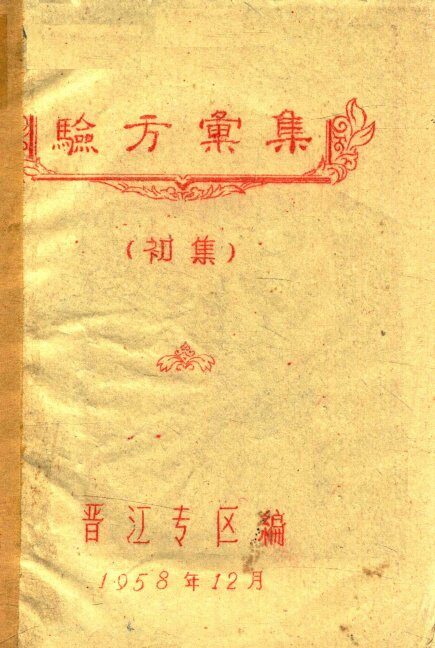 驗方彙集
（初集）
晋江专区编
1958年12月